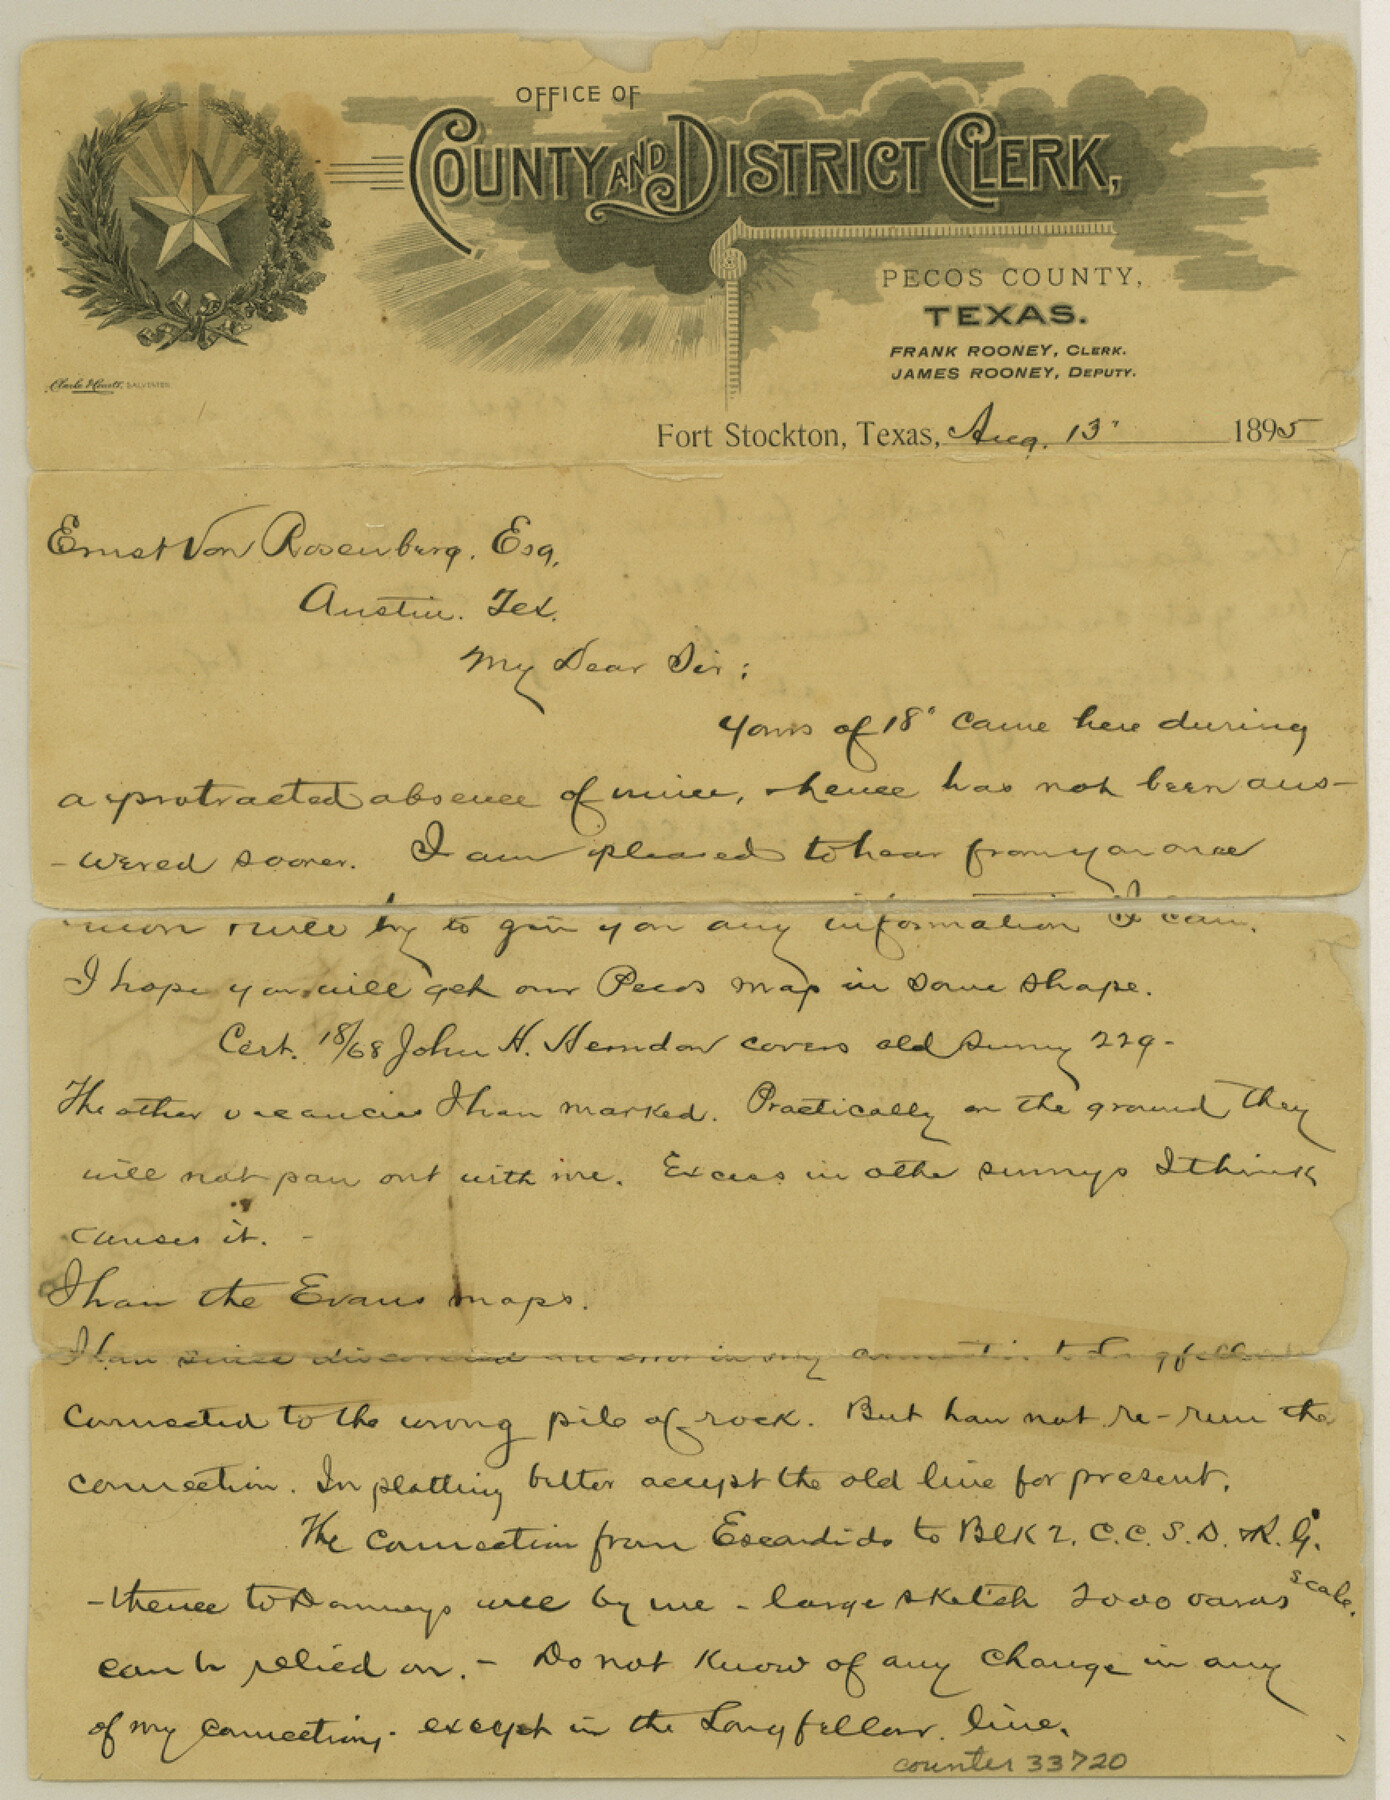 OFFICE OF
COUNTY AND DISTRICT CLERK,
PECOS COUNTY,
TEXAS.
FRANK ROONEY, CLERK.
JAMES ROONEY, DEPUTY.
Clarke & Courts, GALVESTON
Fort Stockton, Texas, Aug. 13" 1895
Ernst Von Rosenberg. Esq,
Austin. Tex.
My Dear Sir:
Yours of 18" came here during
a protracted absence of mine, hence has not been ans-
-wered sooner. I am pleased to hear from you once
more & will try to give you any information I can.
I hope you will get our Pecos map in some shape.
Cert. 18/68 John H. Herndon covers old survey 229-
The other vacancies I have marked. Practically on the ground they
will not pan out with me. Excess in other surveys I think
causes it. -
I have the Evans maps.
I have since discovered an error in my connection to Longfellow
Connected to the wrong pile of rock. But have not re-run the
connection. In platting better accept the old line for present.
The connection from Escondido to BLK 2. C.C.S.D. & R.G.
- thence to Downeys well by me - large sketch 2000 varas scale.
can be relied on. - Do not know of any change in any
of my connections - except in the Longfellow. line.
counter 33720